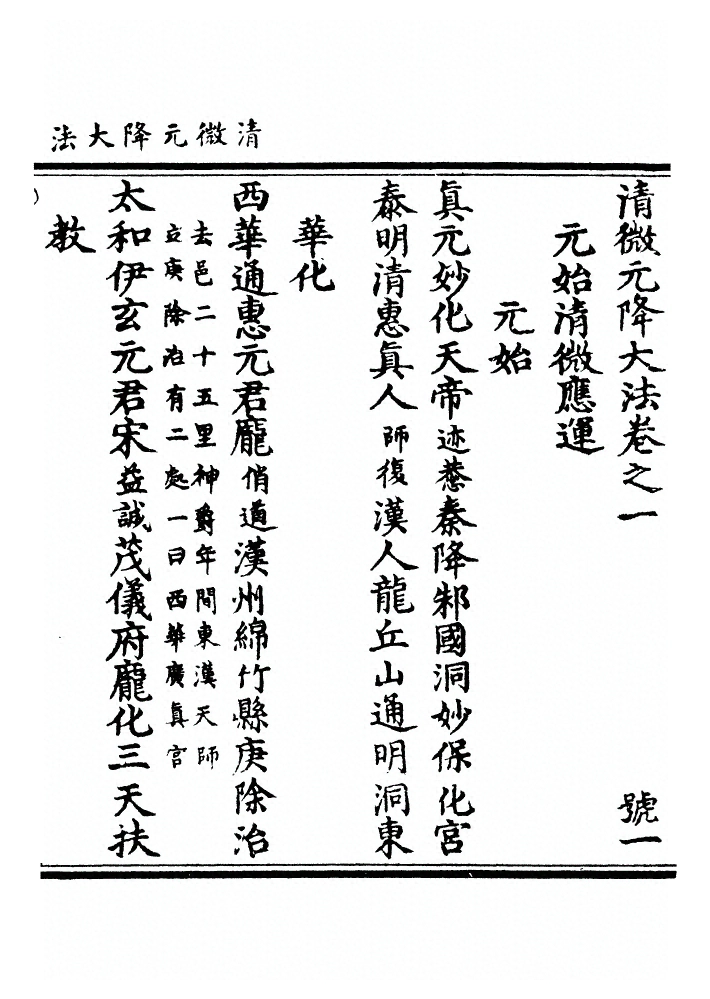 清微元降大法
清微元降大法卷之一　號一
元始清微應運
元始
真元妙化天帝迹莣秦降邾國洞妙保化宮
泰明清惠真人師復漢人龍丘山通明洞東
華化
西華通惠元君龎俏遒漢州綿竹縣庚除治
去邑二十五里神爵年間東漢天師
立庚除治有二處一曰西華廣真宮
太和伊玄元君宋益誠茂儀府龎化三天扶
教